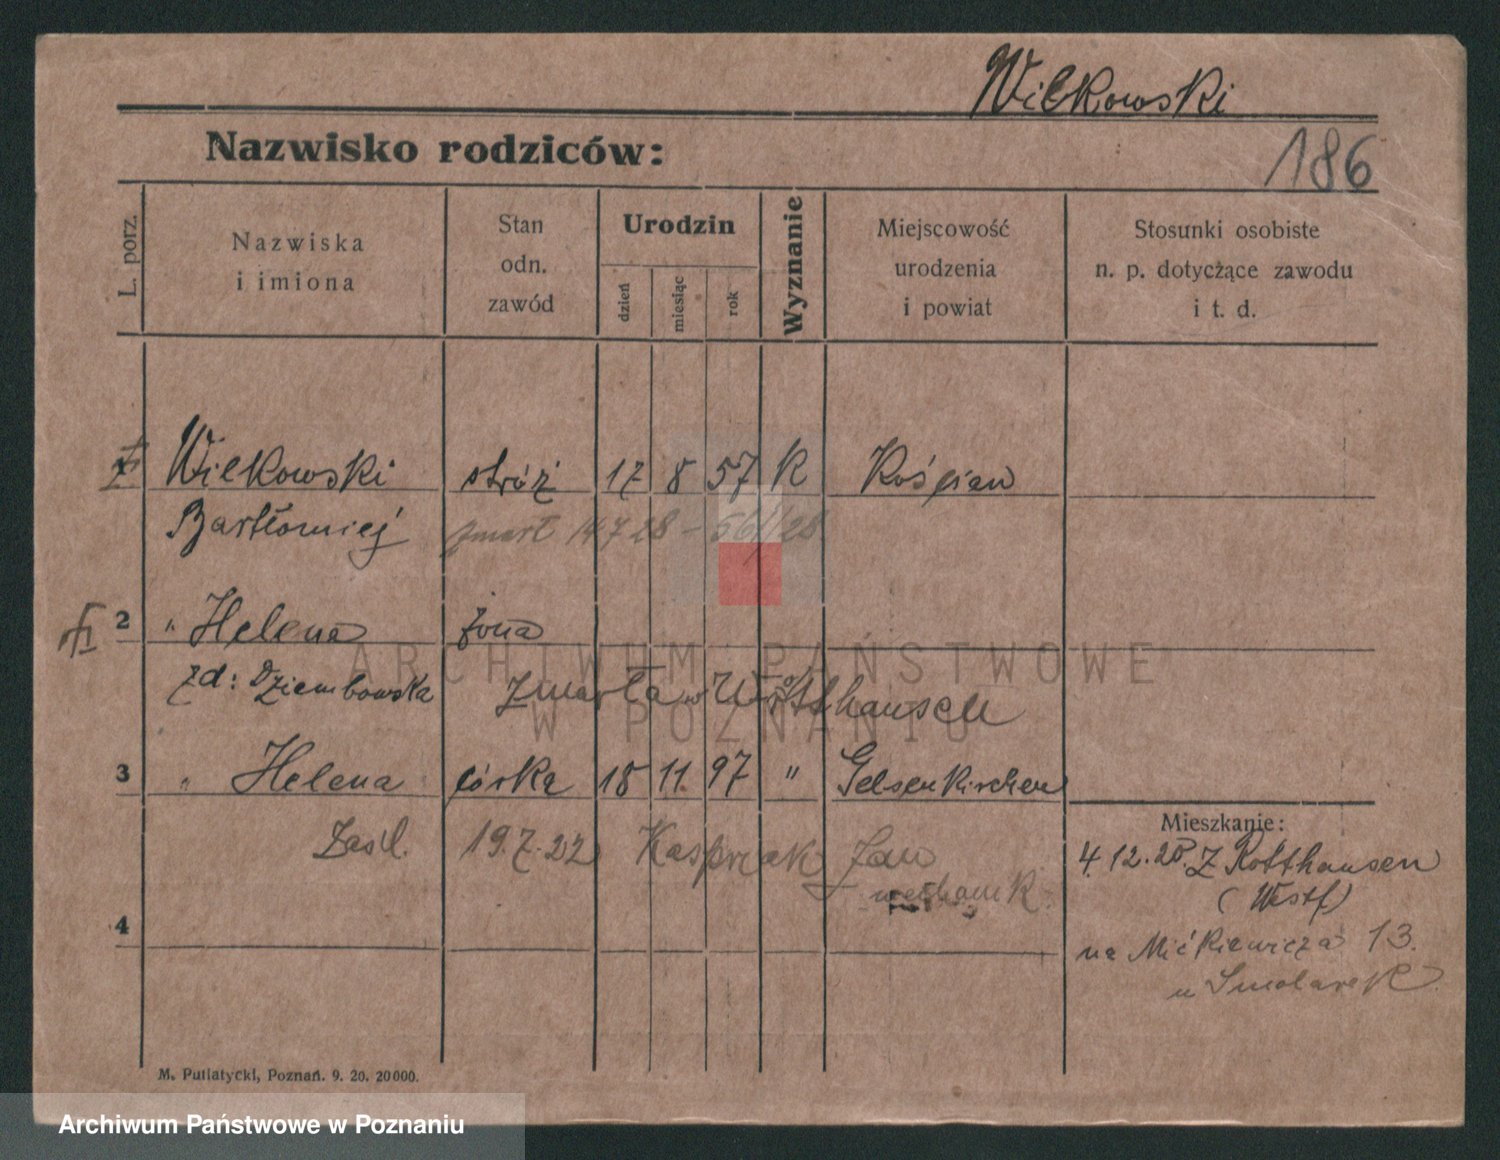 Wilkowski
Nazwisko rodziców:
186
L. porz.
Nazwiska
i imiona
Stan
odn.
zawód
Urodzin
dzień
miesiąc
rok
Wyznanie
Miejscowość
urodzenia
i powiat
Stosunki osobiste
n. p. dotyczące zawodu
i t. d.
Wilkowski stróż 17 8 57 K Kościan
Bartłomiej zmarł 14 7 28 – 561/28
2 " Helena żona
zd: Dziembowska zmarła w Rotthausen
3 " Helena córka 18 11. 97 " Gelsenkirchen
Zaśl. 19.7.22 Kasprzak Jan
mechanik.
4
Mieszkanie:
4.12.20. Z Rotthausen
(Westf)
na Mickiewicza 13.
u Smolarek
M. Putiatycki, Poznań. 9. 20. 20000.
ARCHIWUM PAŃSTWOWE
W POZNANIU
Archiwum Państwowe w Poznaniu